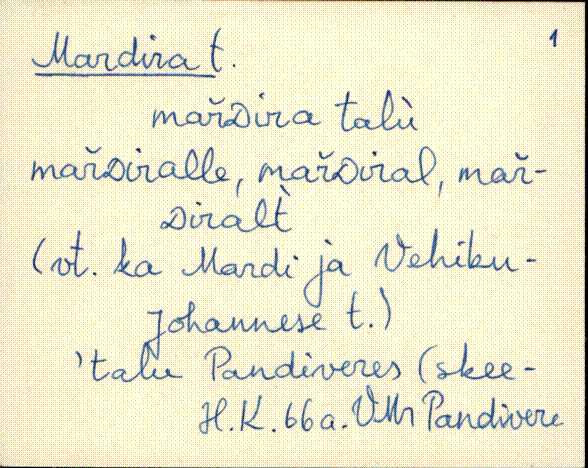 1
Mardira t.
mařDira talù
mařDiralle, mařDiral, mař-
Diral̀t
(vt. ka Mardi ja Vehiku-
johannese t.)
'talu Pandiveres (skee-
H.K. 66a. VMr Pandivere